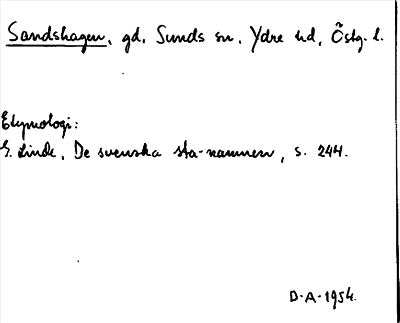 Sandshagen, gd, Sunds sn, Ydre hd, Östg. l.
Etymologi:
G. Linde, De svenska sta-namnen, s. 244.
D-A-1954.